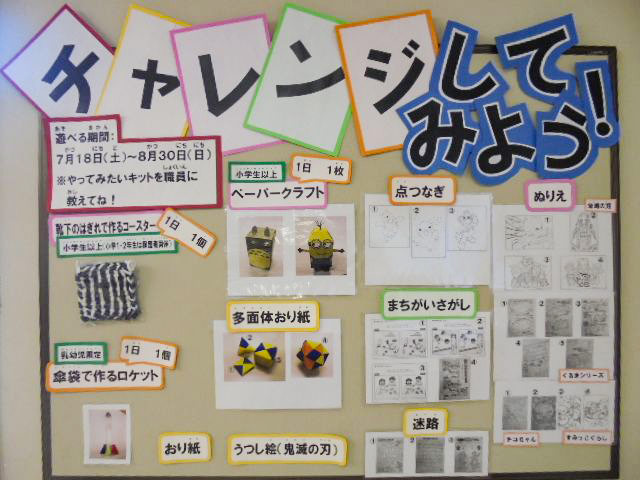 チャレンジしてみよう!
遊べる期間:
7月18日(土)~8月30日(日)
※やってみたいキットを職員に
教えてね!
靴下のはぎれで作るコースター
1日 1個
小学生以上
乳幼児限定
1日 1個
傘袋で作るロケット
おり紙
小学生以上
1日 1枚
ペーパークラフト
多面体おり紙
うつし絵(鬼滅の刃)
点つなぎ
まちがいさがし
迷路
ぬりえ
鬼滅の刃
くるまシリーズ
チコちゃん
すみっこぐらし